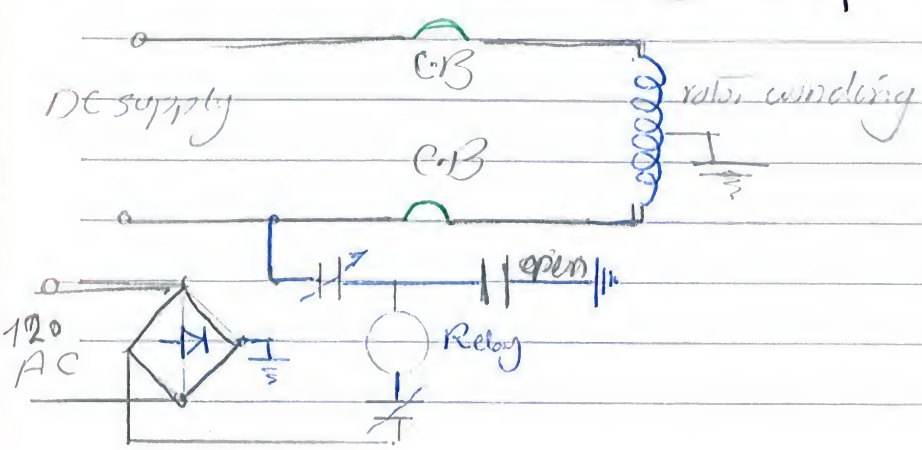 C.B
DC supply
rotor winding
C.B
open
120
AC
Relay